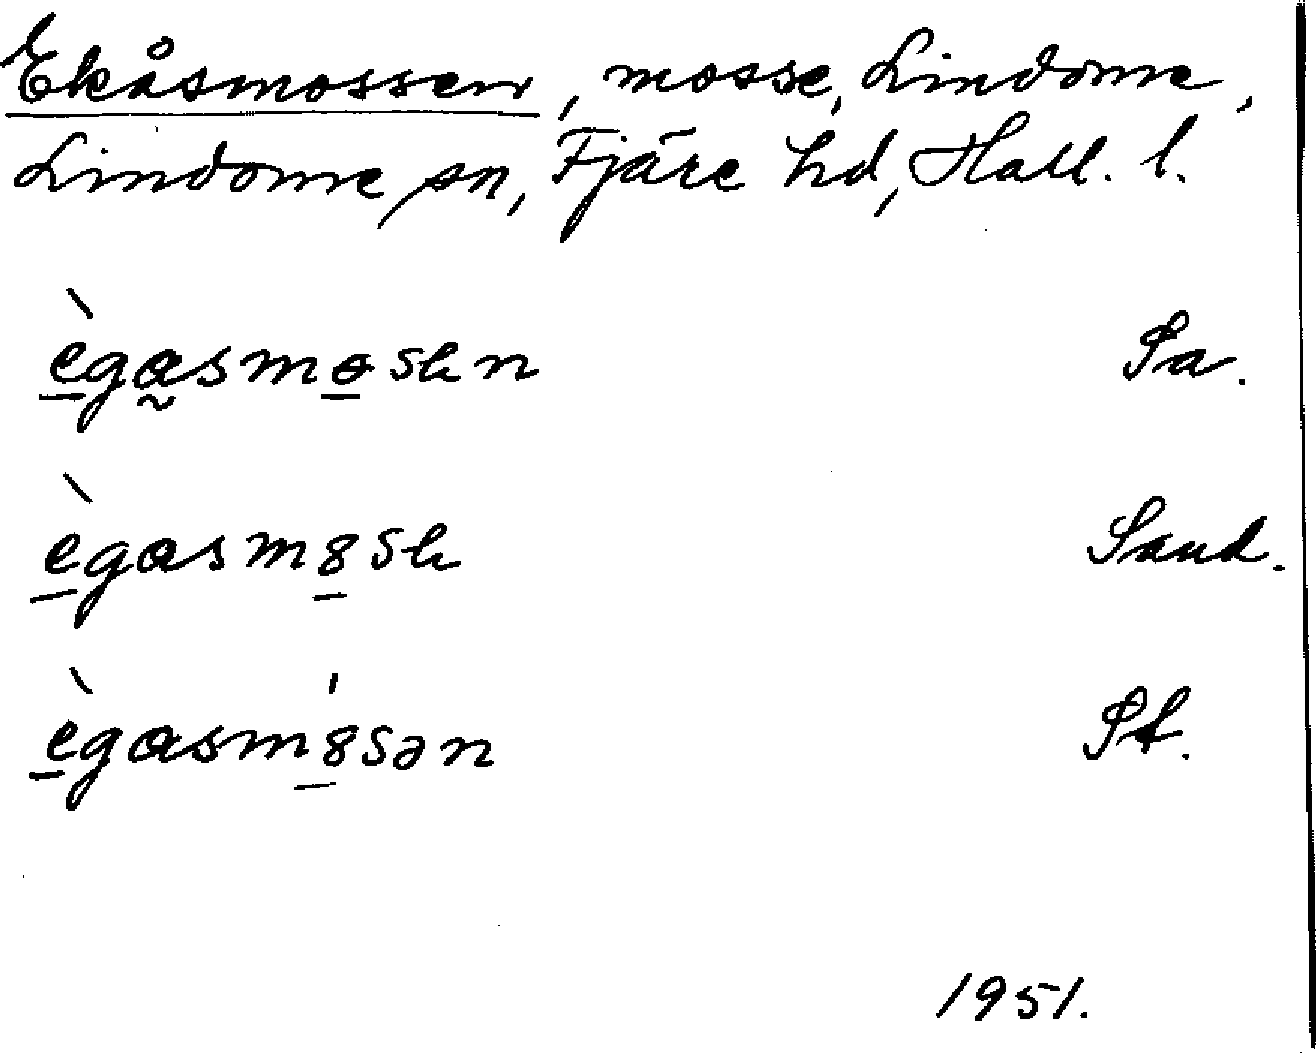 Ekåsmossen, mosse, Lindome,
Lindome sn, Fjäre hd, Hall. l.
ègasmosen Sa.
ègasm8se Sand.
ègasm8́sən St.
1951.